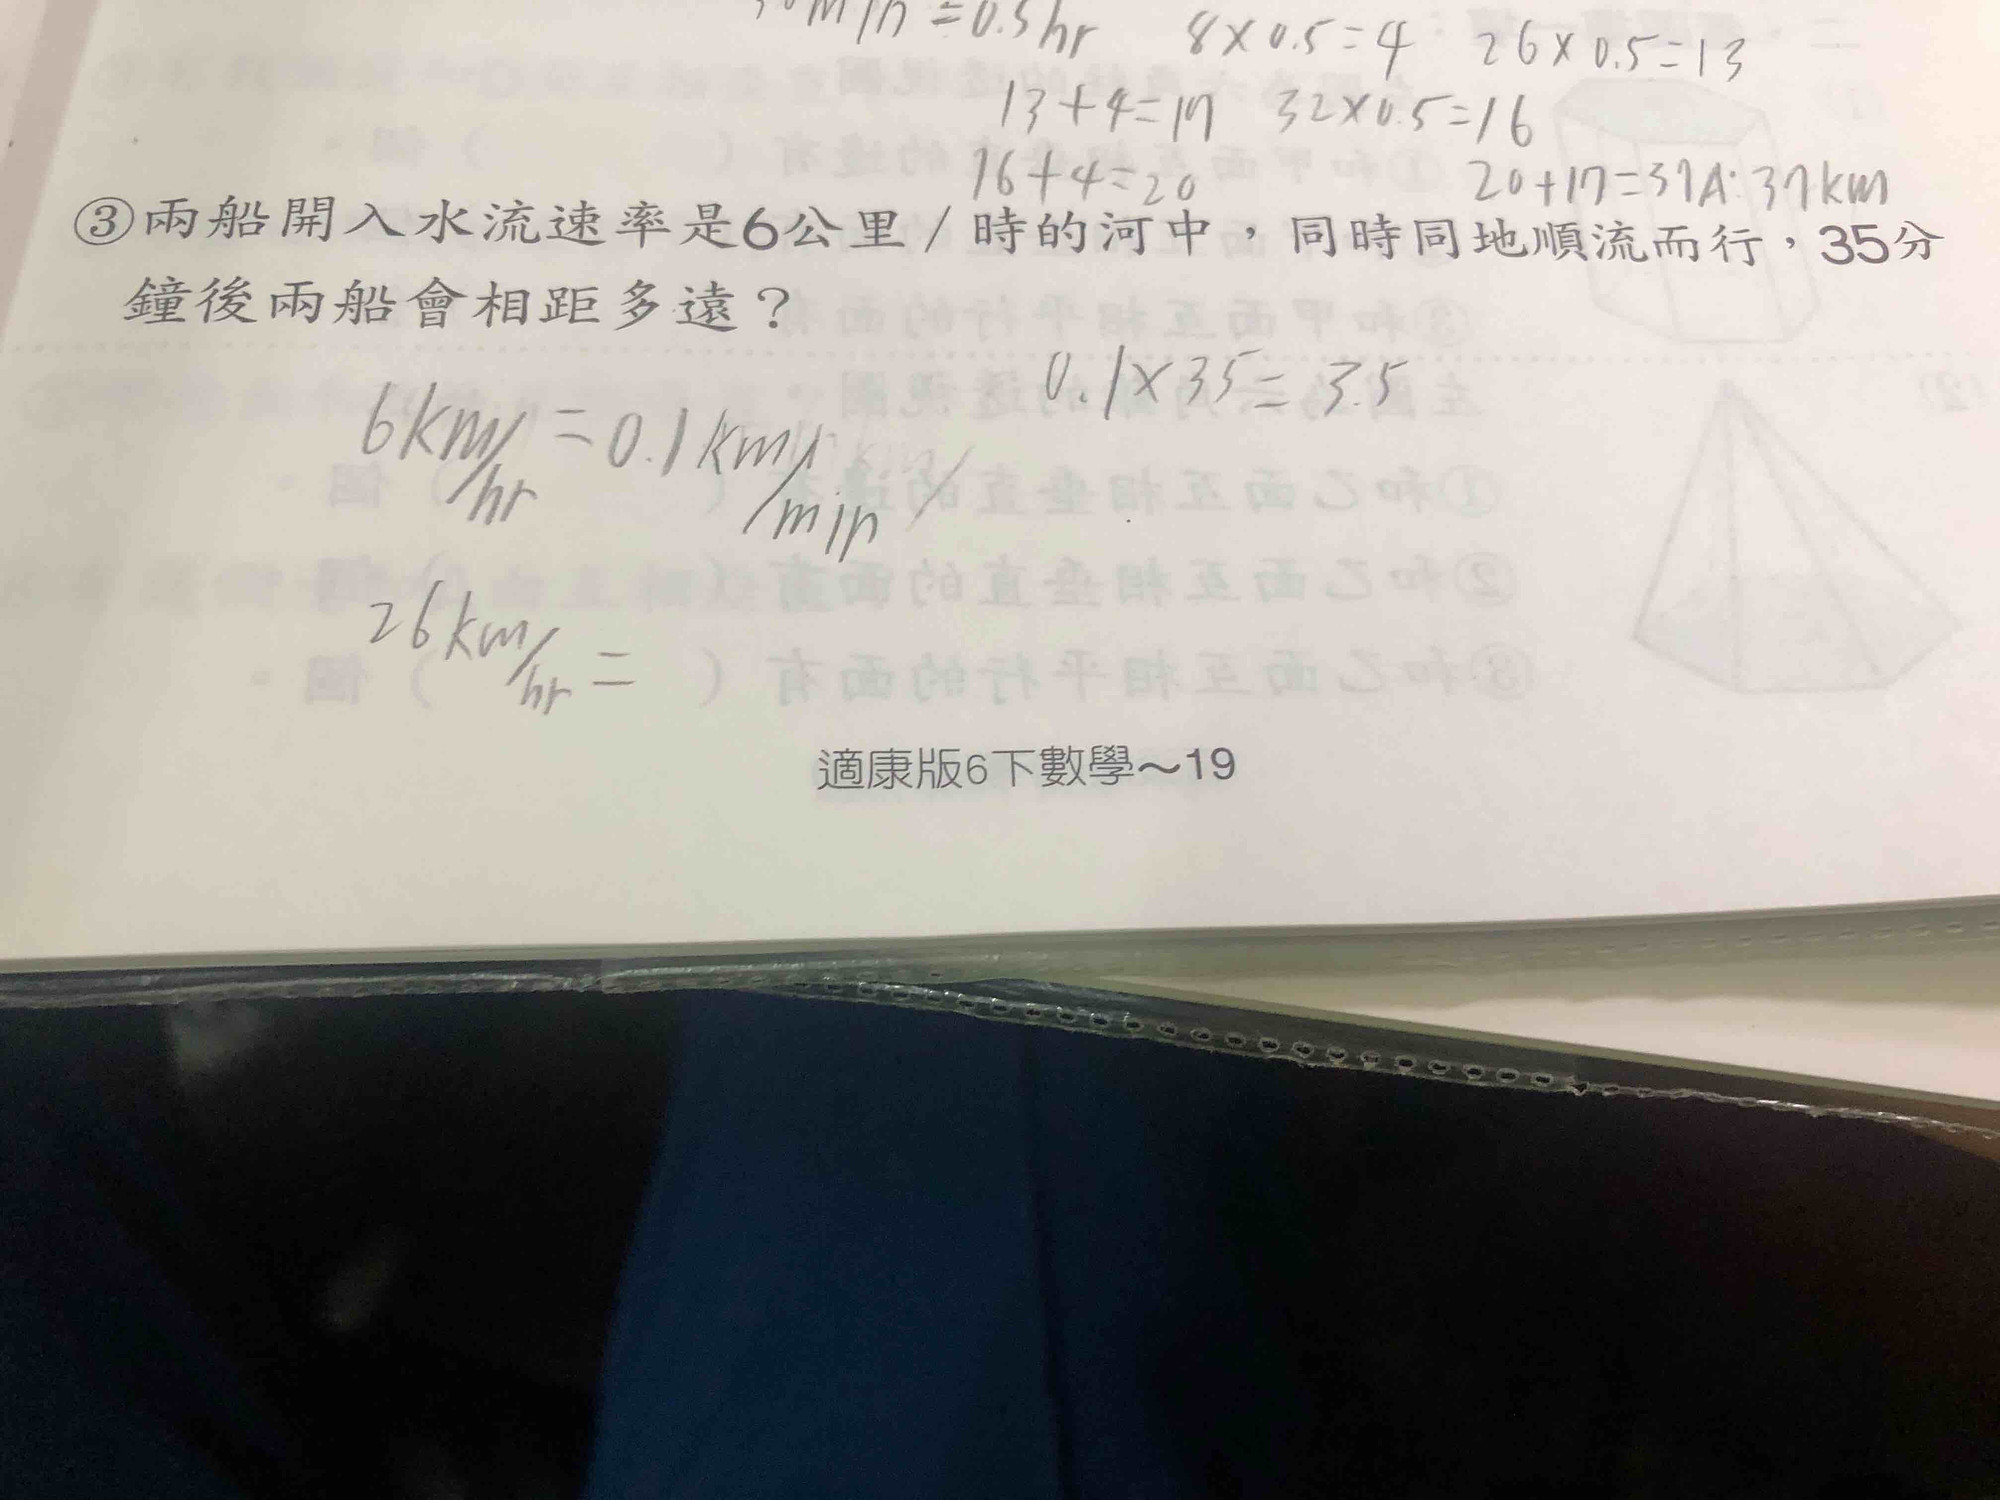 min=0.5hr 8×0.5=4 26×0.5=13
13+4=17 32×0.5=16
16+4=20 20+17=37A:37km
③兩船開入水流速率是6公里/時的河中，同時同地順流而行，35分
鐘後兩船會相距多遠？
0.1×35=3.5
6km/hr=0.1km/min
26km/hr=
適康版6下數學～19